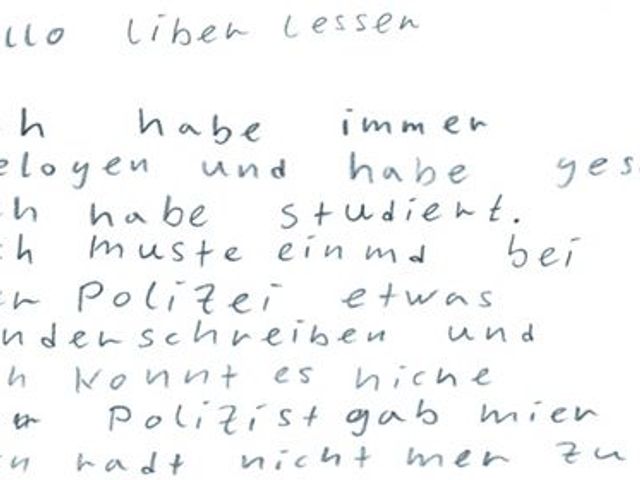 llo liber Lesser
h habe immer
elogen und habe ges
ch habe studiert.
ch muste einmal bei
er Polizei etwas
nderschreiben und
h konnt es niche
er Polizist gab mier
en radt nicht mer zu